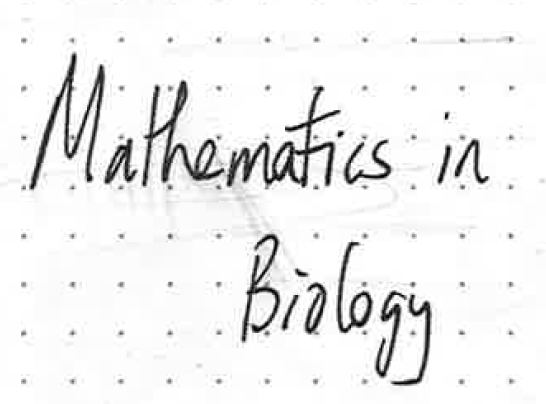 Mathematics in
Biology